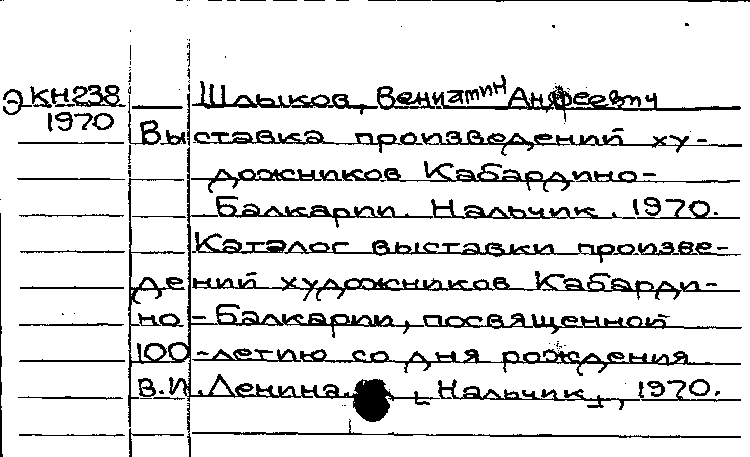 Э КН238 Шлыков, Вениамин Андреевич
1970
Выставка произведений ху-
дожников Кабардино-
Балкарии. Нальчик. 1970.
Каталог выставки произве-
дений художников Кабарди-
но-Балкарии, посвященной
100-летию со дня рождения
В.И. Ленина. [Нальчик], 1970.